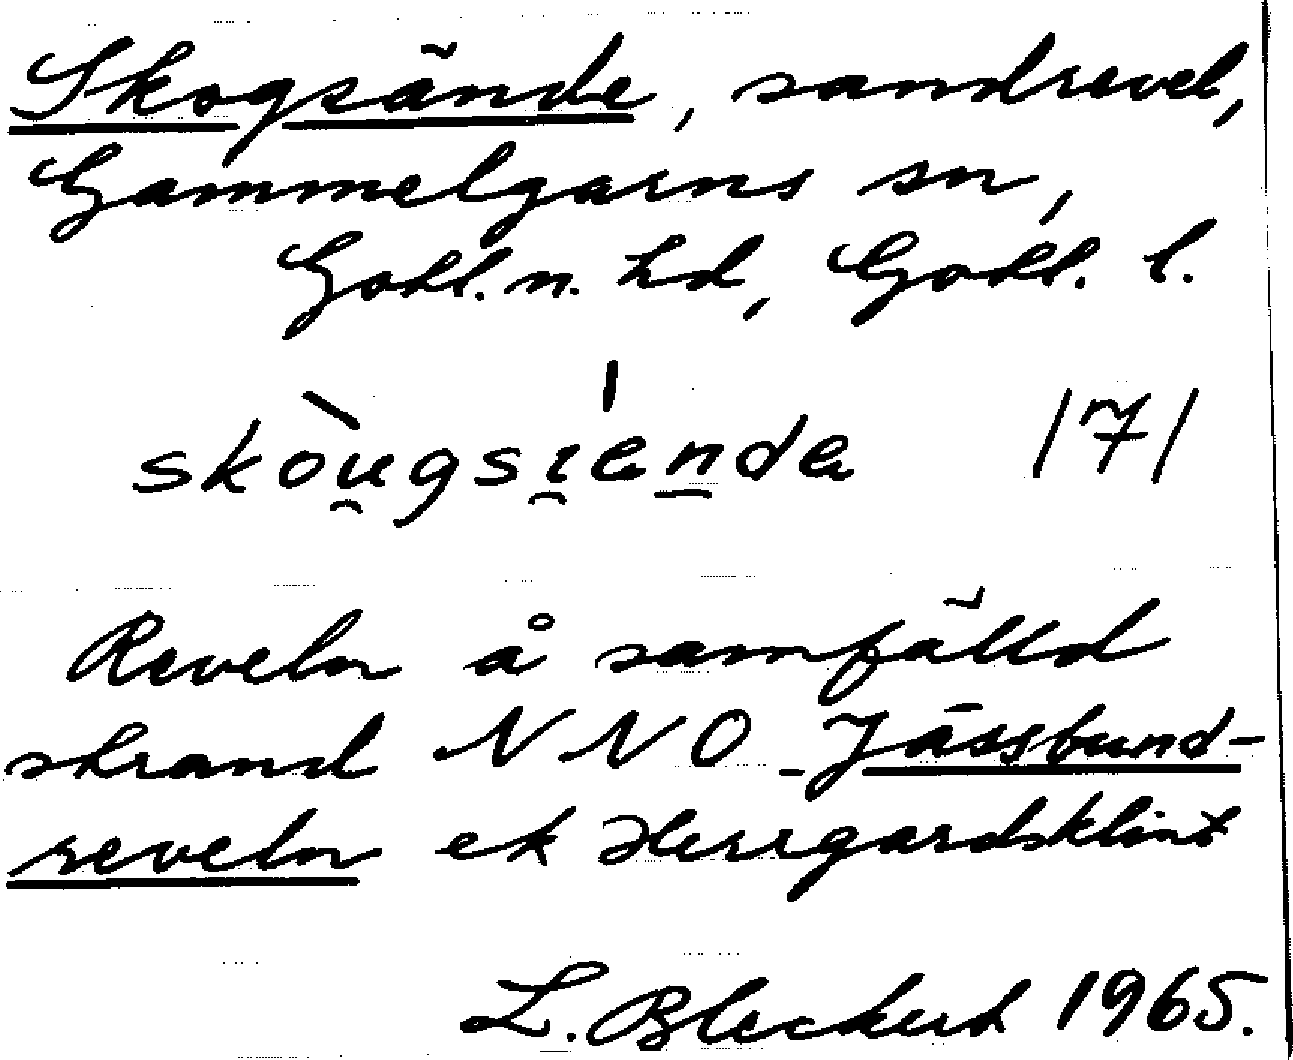 Skogsände, sandrevel,
Gammelgarns sn,
Gotl. n. hd, Gotl. l.
skòu̯gsi̯enda /7/
Reveln å samfälld
strand NNO Jässbund-
reveln ek Herrgardsklint
L. Bleckert 1965.